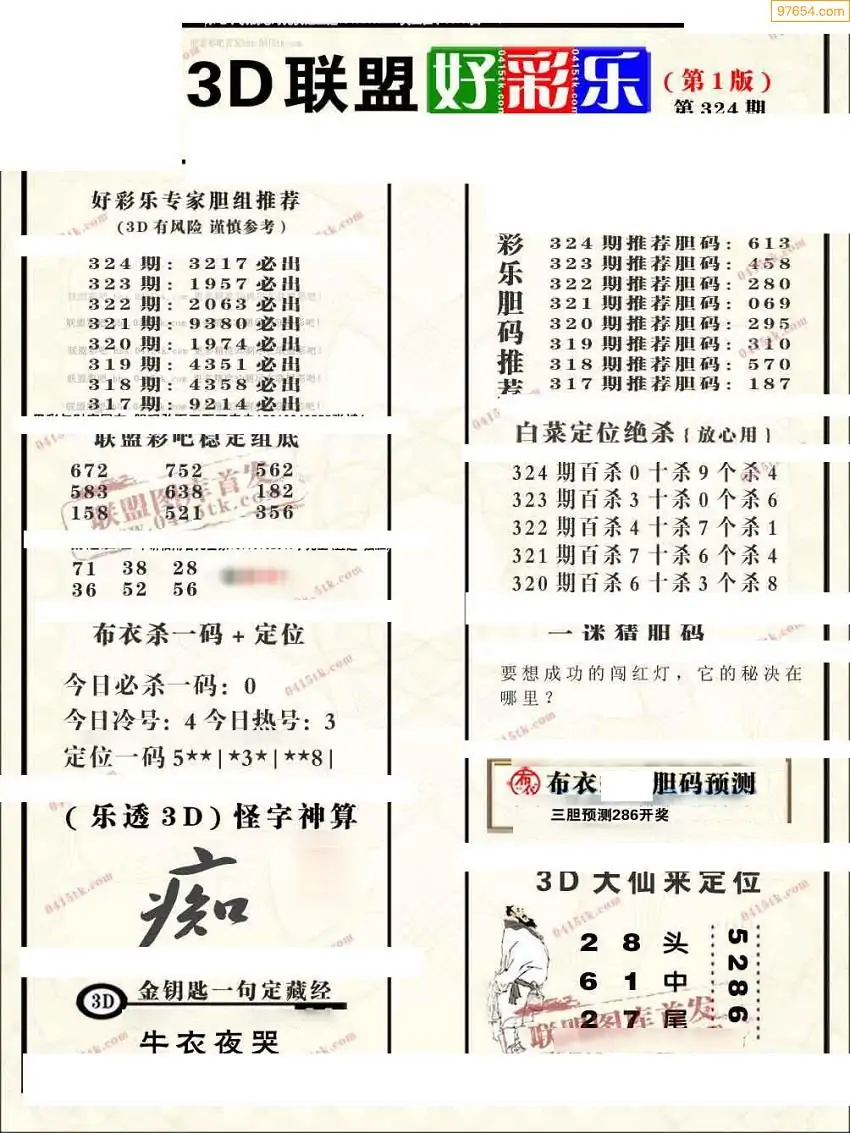 97654.com
3D联盟好彩乐(第1版)
第324期
好彩乐专家胆组推荐
(3D有风险 谨慎参考)
324期: 3217必出
323期: 1957必出
322期: 2063必出
321期: 9380必出
320期: 1974必出
319期: 4351必出
318期: 4358必出
317期: 9214必出
联盟彩吧稳定组底
672 752 562
583 638 182
158 521 356
71 38 28
36 52 56
布衣杀一码+定位
今日必杀一码: 0
今日冷号: 4 今日热号: 3
定位一码 5**|*3*|**8|
(乐透3D)怪字神算
痴
3D 金钥匙一句定藏经
牛衣夜哭
彩乐胆码推荐
324期推荐胆码: 613
323期推荐胆码: 458
322期推荐胆码: 280
321期推荐胆码: 069
320期推荐胆码: 295
319期推荐胆码: 310
318期推荐胆码: 570
317期推荐胆码: 187
白菜定位绝杀{放心用}
324期百杀0十杀9个杀4
323期百杀3十杀0个杀6
322期百杀4十杀7个杀1
321期百杀7十杀6个杀4
320期百杀6十杀3个杀8
一迷猜胆码
要想成功的闯红灯，它的秘决在
哪里？
布衣 布衣 胆码预测
三胆预测286开奖
3D大仙来定位
2 8 头
6 1 中
2 7 尾
5286
联盟图库首发
www.0415tk.com
联盟图库首发
0415tk.com